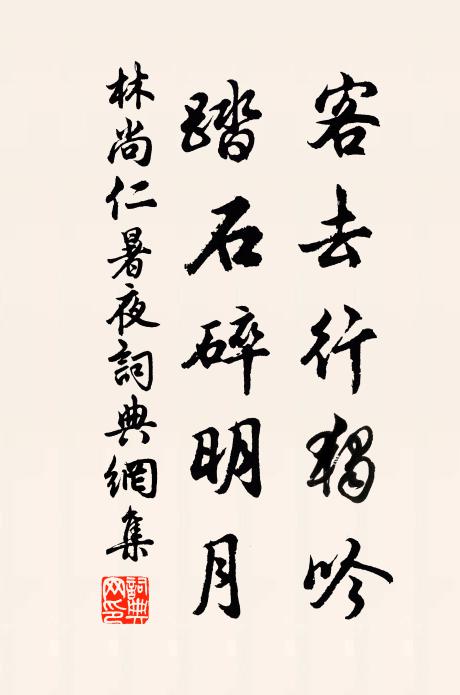 客去行獨吟
踏石碎明月
林尚仁暑夜詞典網集
詞典網印